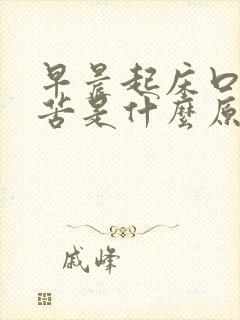 早晨起床口
苦是什麼原
戚峰